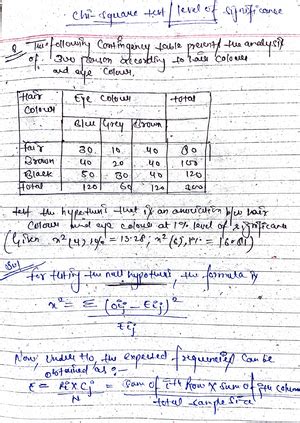 Chi-square test / level of significance
Q. The following contingency table present the analysis
of 300 person according to hair colour
and eye colour.
Hair Colour | Eye colour | total
Blue | Grey | Brown
Fair 30 10 40 80
Brown 40 20 40 100
Black 50 30 40 120
total 120 60 120 300
test the hypothesis that is an association b/w hair
colour and eye colour at 1% level of significance
(Given x²(4), 1% = 13.28, x²(6), 1% = 16.81)
Sol
For testing the null hypothesis, the formula is
x² = Σ (Oij - Eij)²
Eij
Now, under H0, the expected frequencies can be
obtained as :-
E = Ri × Cj / N = Sum of ith Row × Sum of jth column / total sample size